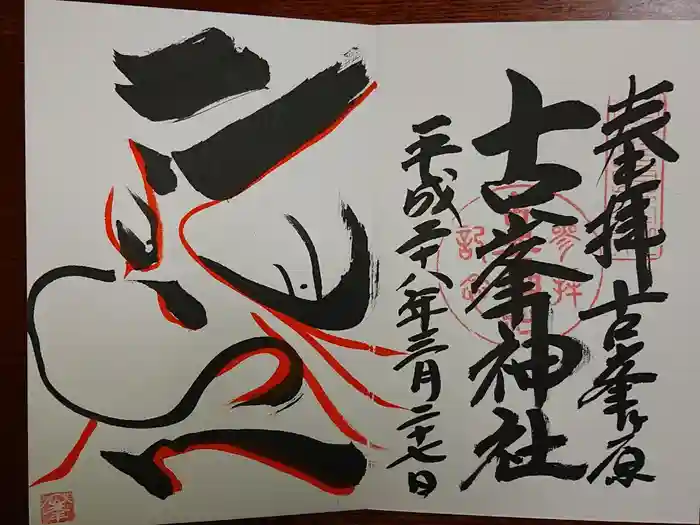 奉拝 古峯ヶ原
古峯神社
平成二十八年三月二十七日
参拝
記念